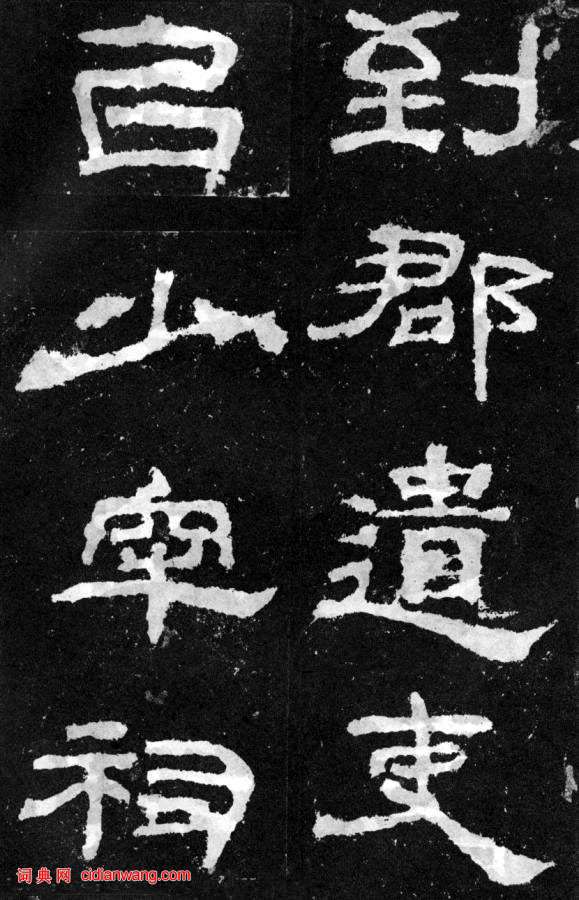 到郡遣吏
㠯少牢祠
词典网 cidianwang.com